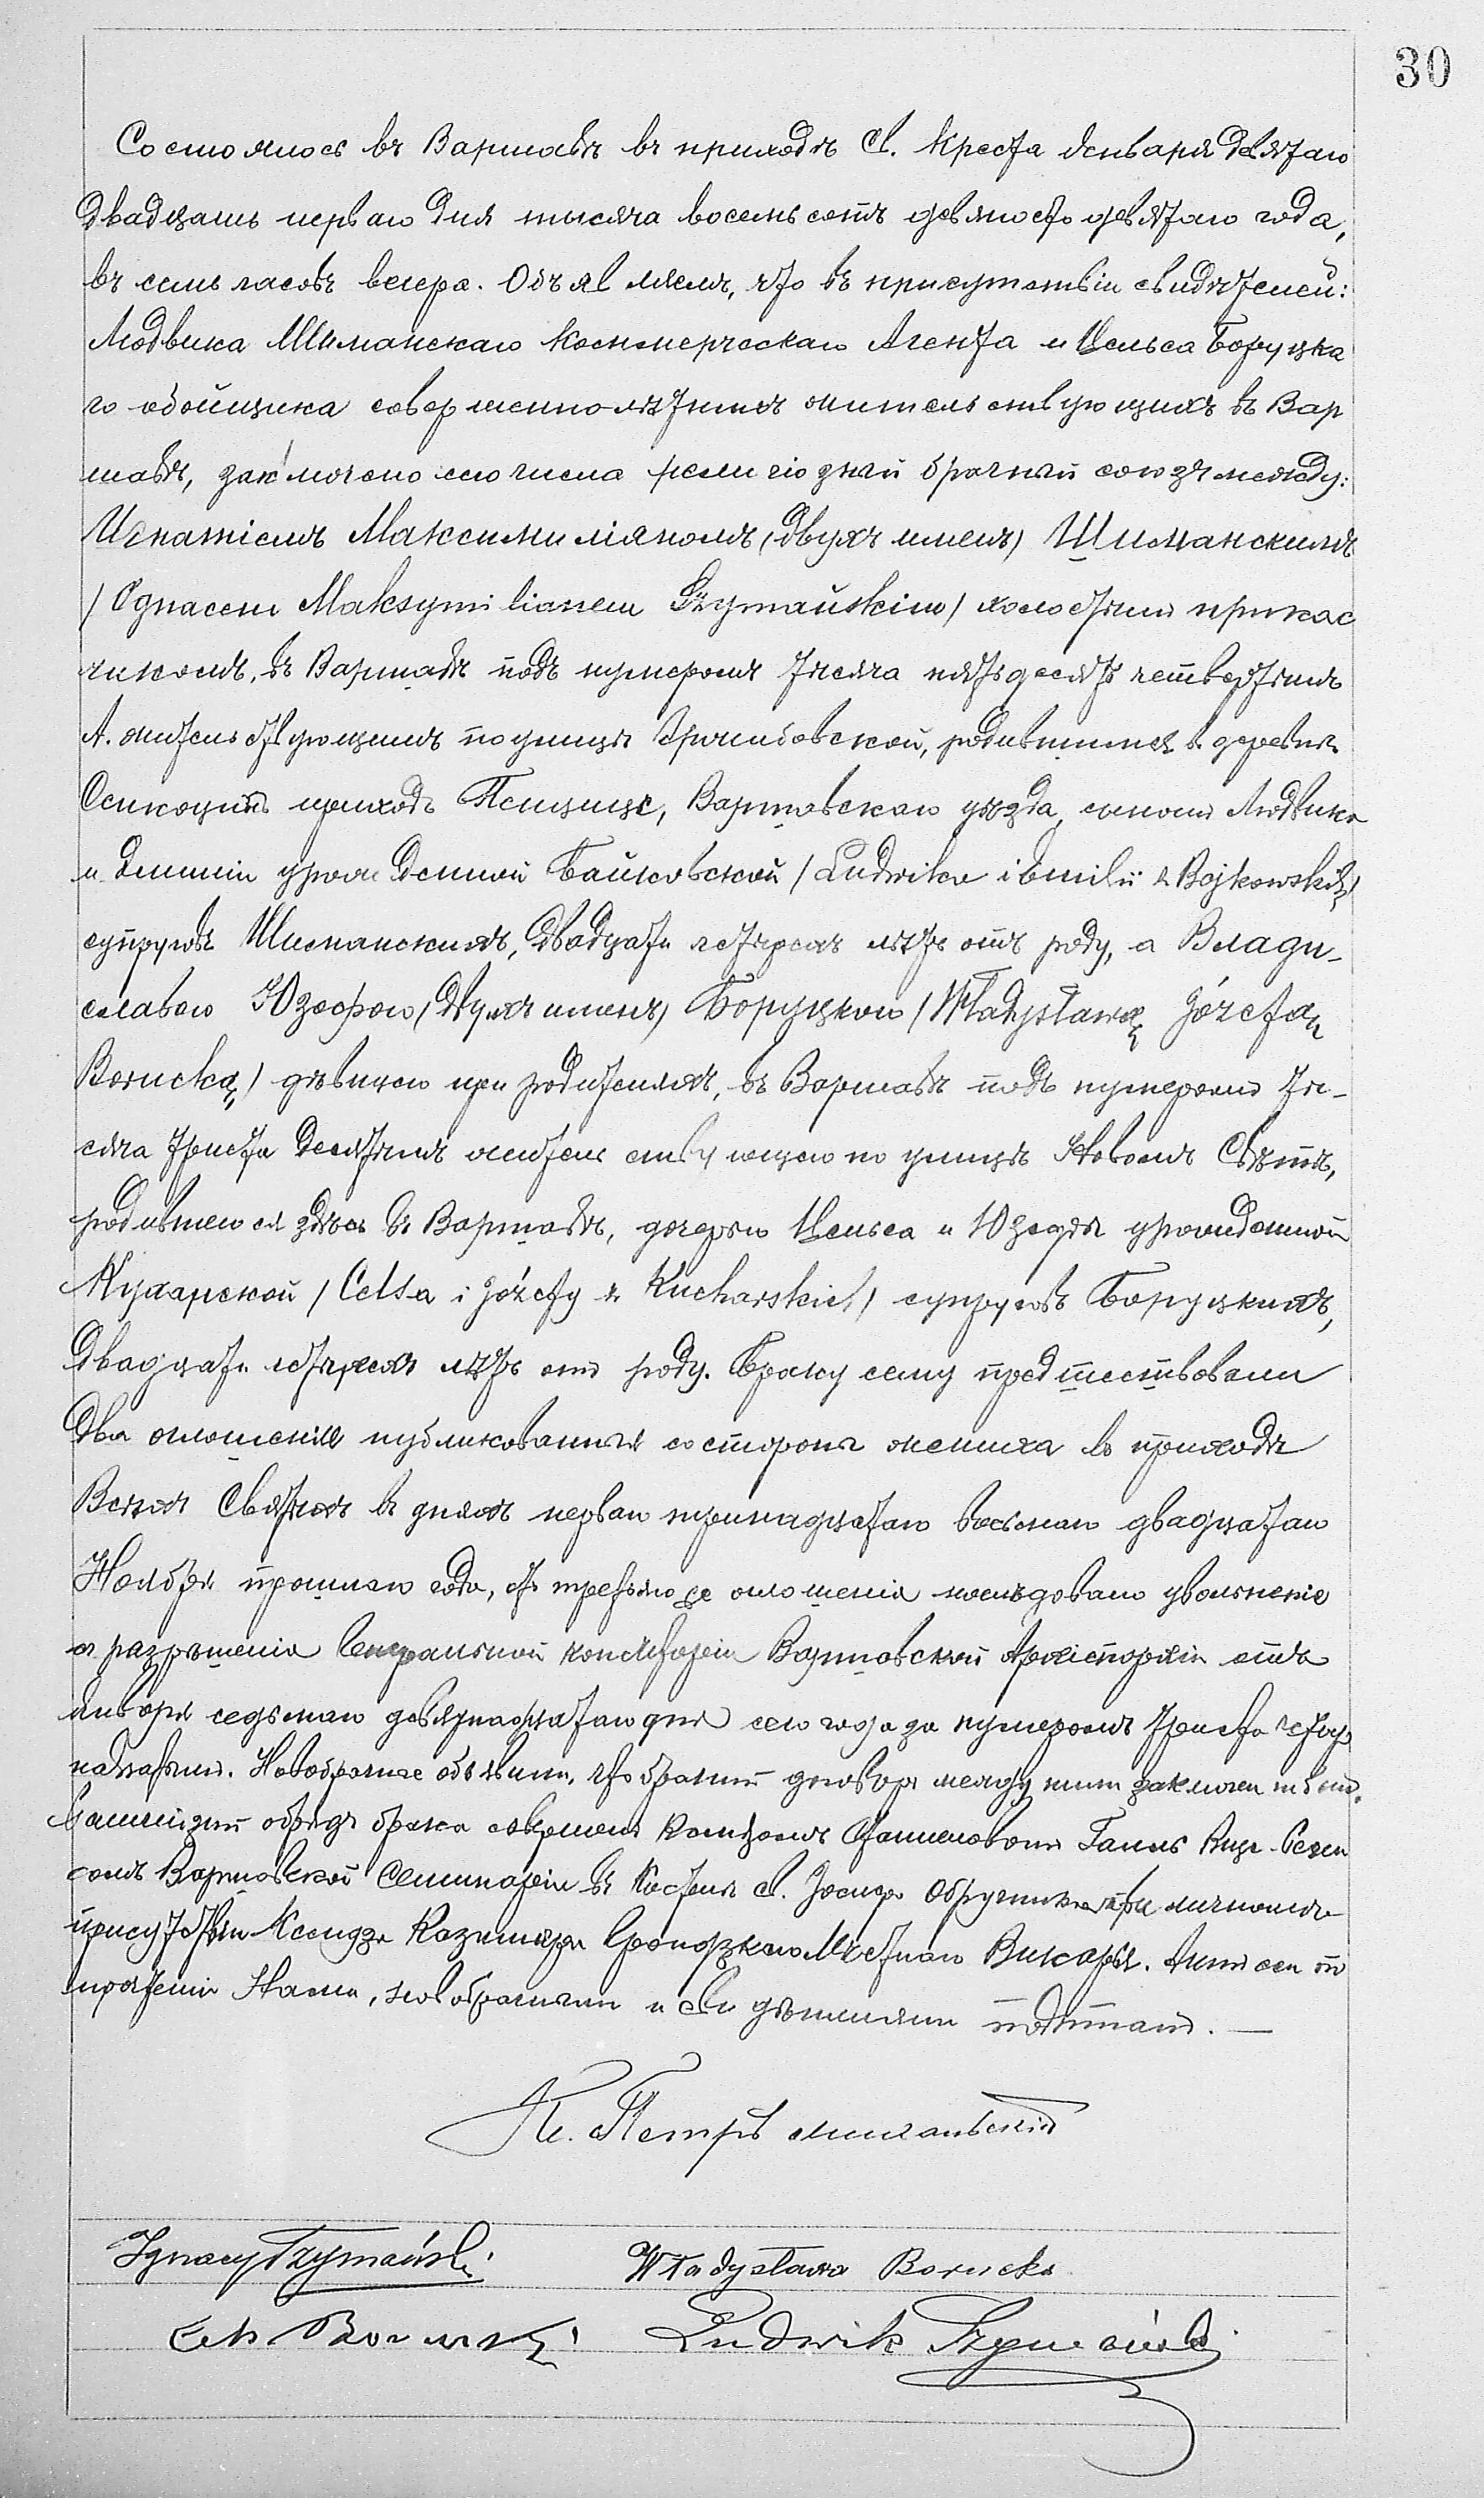 30
Состоялось въ Варшавѣ въ приходѣ Св. Креста Января девятаго
двадцать перваго дня тысяча восемьсотъ девяносто девятаго года,
въ семь часовъ вечера. Объявляемъ, что въ присутствіи свидѣтелей:
Людвика Шиманскаго Коммерческаго Агента и Цельса Боруцка
го обойщика совершеннолѣтнихъ жительствующихъ въ Вар
шавѣ, заключено сего числа религіозный брачный союзъ между:
Игнатіемъ Максимиліяномъ (двухъ именъ) Шиманскимъ
/Ignacem Maksymilianem Szymańskim/ холостымъ приказ
чикомъ, въ Варшавѣ подъ нумеромъ тысяча пятьдесятъ четвертымъ
А. жительствующимъ по улицѣ Гржибовской, родившимся въ деревнѣ
приходъ Пещице, Варшавскаго уѣзда, сыномъ Людвика
и Эмиліи урожденной Байковской /Ludwika i Emilii z Bojkowskich/
супруговъ Шиманскихъ, двадцати четырехъ лѣтъ отъ роду, а Влади-
славою Юзефою (двухъ именъ) Боруцкою /Władysławą Józefą
Borucką/ дѣвицею при родителяхъ, въ Варшавѣ подъ нумеромъ ты-
сяча триста десятымъ жительствующею по улицѣ Новомъ Свѣтѣ,
родившеюся здѣсь въ Варшавѣ, дочерью Цельса и Юзефы урожденной
Кухарской /Celsa i Józefy z Kucharskich/ супруговъ Боруцкихъ,
двадцати четырехъ лѣтъ отъ роду. Браку сему предшествовали
два оглашенія публикованныя со стороны жениха въ приходѣ
Всѣхъ Святыхъ въ дняхъ перваго тринадцатаго восьмаго двадцатаго
Ноября прошлаго года, отъ третьяго же оглашенія послѣдовало увольненіе
съ разрѣшенія Генеральной Консисторіи Варшавской Архіепархіи отъ
Января седьмаго девятнадцатаго дня сего года за нумеромъ триста четыр
надцатымъ. Новобрачные объявили, что брачный договоръ между ними заключен не былъ.
обрядъ брака совершенъ Ксендзомъ Станиславомъ Галль Вице-Реген
сомъ Варшавской Семинаріи въ Костелѣ Св. Іосифа Обручника при личномъ
присутствіи Ксендза Казимира Мѣстнаго Викарія. Актъ сей по
прочтеніи Нами, новобрачными и свидѣтелями подписанъ. —
К. Петръ
Ignacy Szymański
Władysława Borucka
Cels Borucki
Ludwik Szymański